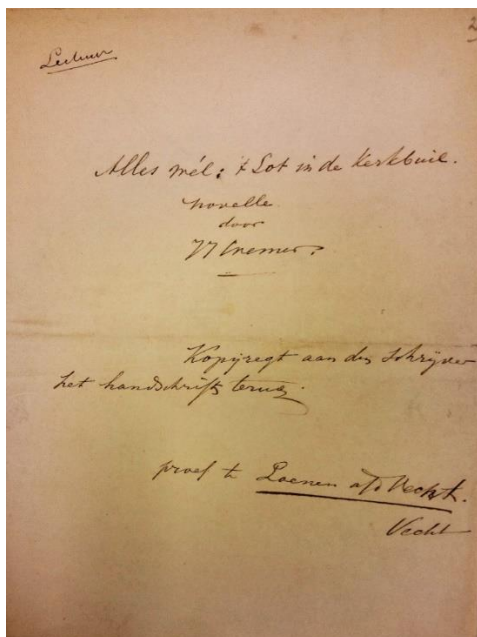 Lectuur
2
Alles mél: 't Lot in de Kerkbuil.
novelle
door
JJ Cremer.
Kopijregt aan den Schrijver
het handschrift terug.
proef te Loenen a/d Vecht.
Vecht